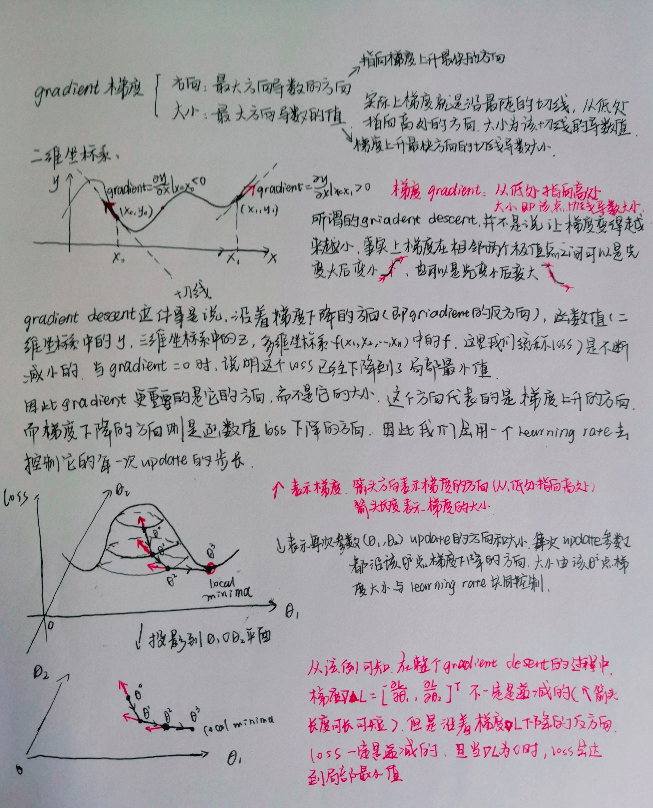 指向梯度上升最快的方向
gradient 梯度 方向：最大方向导数的方向
大小：最大方向导数的值
实际上梯度就是沿最陡的切线，从低处
指向高处的方向．大小为该切线的导数值．
梯度上升最快方向的切线导数大小．
二维坐标系、
y
gradient=∂y/∂x|x=x₀<0
gradient=∂y/∂x|x=x₁>0
(x₀,y₀)
(x₁,y₁)
x₀
x₁
x
切线
梯度 gradient：从低处指向高处
大小即该点切线导数大小．
所谓的griadent descent，并不是说让梯度变得越
来越小．事实上梯度在相邻两个极值点之间可以是先
变大后变小，也可以是先变小后变大
gradient descent这件事是说，沿着梯度下降的方向(即griadient的反方向)，函数值(二
维坐标中的y，三维坐标系中的z，多维坐标系f(x₁,x₂,…xn)中的f．这里我们统称loss)是不断
减小的．当gradient=0时，说明这个loss已经下降到了局部最小值．
因此gradient更重要的是它的方向，而不是它的大小．这个方向代表的是梯度上升的方向．
而梯度下降的方向则是函数值loss下降的方向．因此我们会用一个learning rate去
控制它的每一次update的步长．
loss
θ₂
θ⁰
θ¹
θ²
θ³
local
minima
0
θ₁
↑表示梯度．箭头方向表示梯度的方向(从低处指向高处)
箭头长度表示梯度的大小
↓表示每次参数(θ₁,θ₂) update的方向和大小．每次update参数
都沿该点梯度下降的方向．大小由该点梯
度大小与learning rate共同控制．
↓投影到θ₁Oθ₂平面
θ₂
θ⁰
θ¹
θ²
θ³
local minima
0
θ₁
从该例可知．在整个gradient desent的过程中，
梯度▽L=[∂L/∂θ₁, ∂L/∂θ₂]ᵀ 不一定是递减的(↑箭头
长度可长可短)．但是沿着梯度▽L下降的反方向．
loss一定是递减的．且当▽L为0时，loss到达
到局部最小值